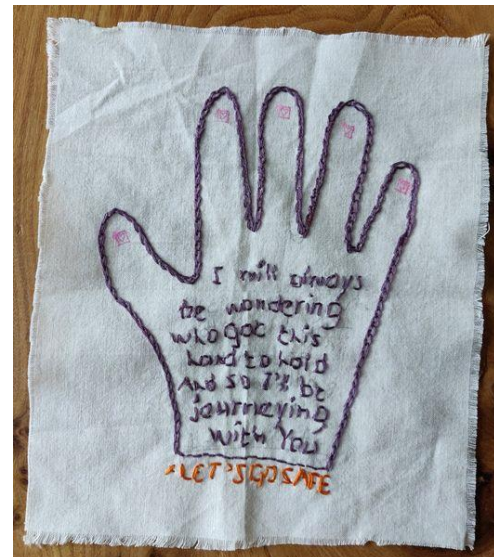 I will always
be wondering
who got this
hand to hold
And so I'll be
journeying
with You
#LET'S GO SAFE